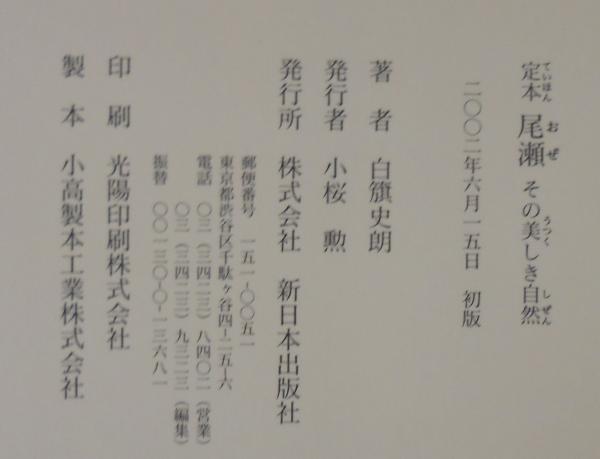 定本 尾瀬 その美しき自然
二〇〇二年六月一五日 初版
著者 白籏史朗
発行者 小桜 勲
発行所 株式会社 新日本出版社
郵便番号 一五一-〇〇五一
東京都渋谷区千駄ヶ谷四-二五-六
電話 〇三(三四二三)八四〇二(営業)
〇三(三四二三)九三二三(編集)
振替 〇〇一三〇-〇-一三六八一
印刷 光陽印刷株式会社
製本 小高製本工業株式会社